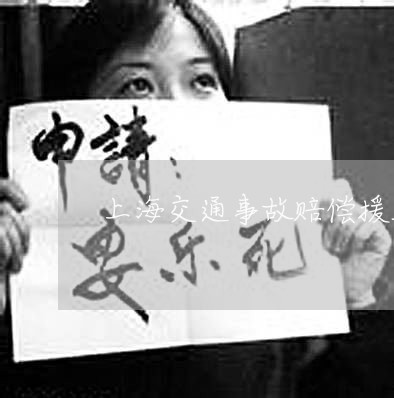 申請：
上海交通事故赔偿援
安乐死